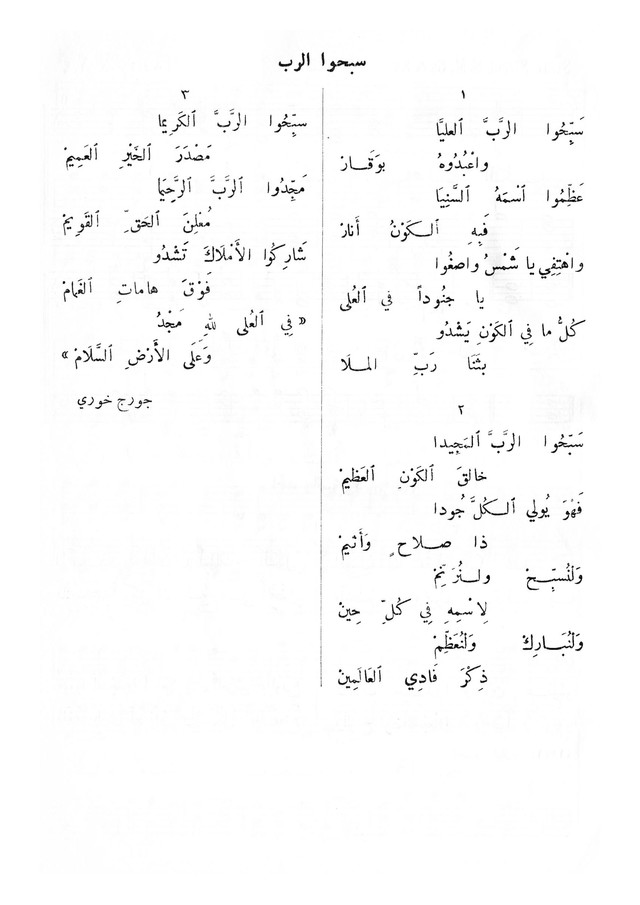 سبحوا الرب
١
سَبِّحُوا الرَّبَّ العليَّا
واعْبُدُوهُ بوَقَارْ
عَظِّمُوا ٱسْمَهُ السَّنِيَا
فَبِهِ ٱلكَوْنُ أنارْ
واهْتِفِي يا شَمْسُ واصغُوا
يا جنُوداً في ٱلعُلى
كُلُّ ما فِي ٱلكَوْنِ يَشدُو
بثَنَا رَبِّ الملَا
٢
سَبّحُوا الرَّبَّ ٱلمَجِيدا
خالقَ ٱلكَوْنِ ٱلعَظِيمْ
فَهْوَ يُولي ٱلكُلَّ جُودا
ذا صلاحٍ وَأثيمْ
وَلنُسبِّحْ ولنُرَنِّمْ
لِاسْمِهِ فِي كُلِّ حِينْ
وَلنُبَارِكْ وَلْنُعَظِّمْ
ذِكْرَ فَادِي العَالَمِينْ
٣
سبِّحُوا الرَّبَّ ٱلكَرِيما
مَصْدَرَ ٱلخَيْرِ ٱلعَمِيمْ
مَجِّدُوا الرَّبَّ الرَّحِيَما
مُعْلِنَ ٱلحَقِّ القَوِيمْ
شَارِكُوا الأَمْلَاكَ تَشْدُو
فَوْقَ هاماتِ ٱلغَمامْ
« فِي ٱلعُلى للهِ مَجْدُ
وَعَلَى الأَرْضِ السَّلَامْ »
جورج خوري